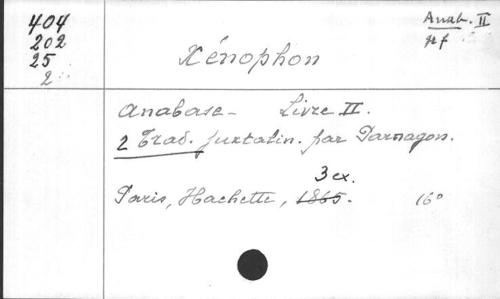 404
202
25
2
Anab. II
Xénophon
Anabase - Livre II.
2 Trad. juxtalin. par Parnagon.
3 ex.
Paris, Hachette, 1865. 16°